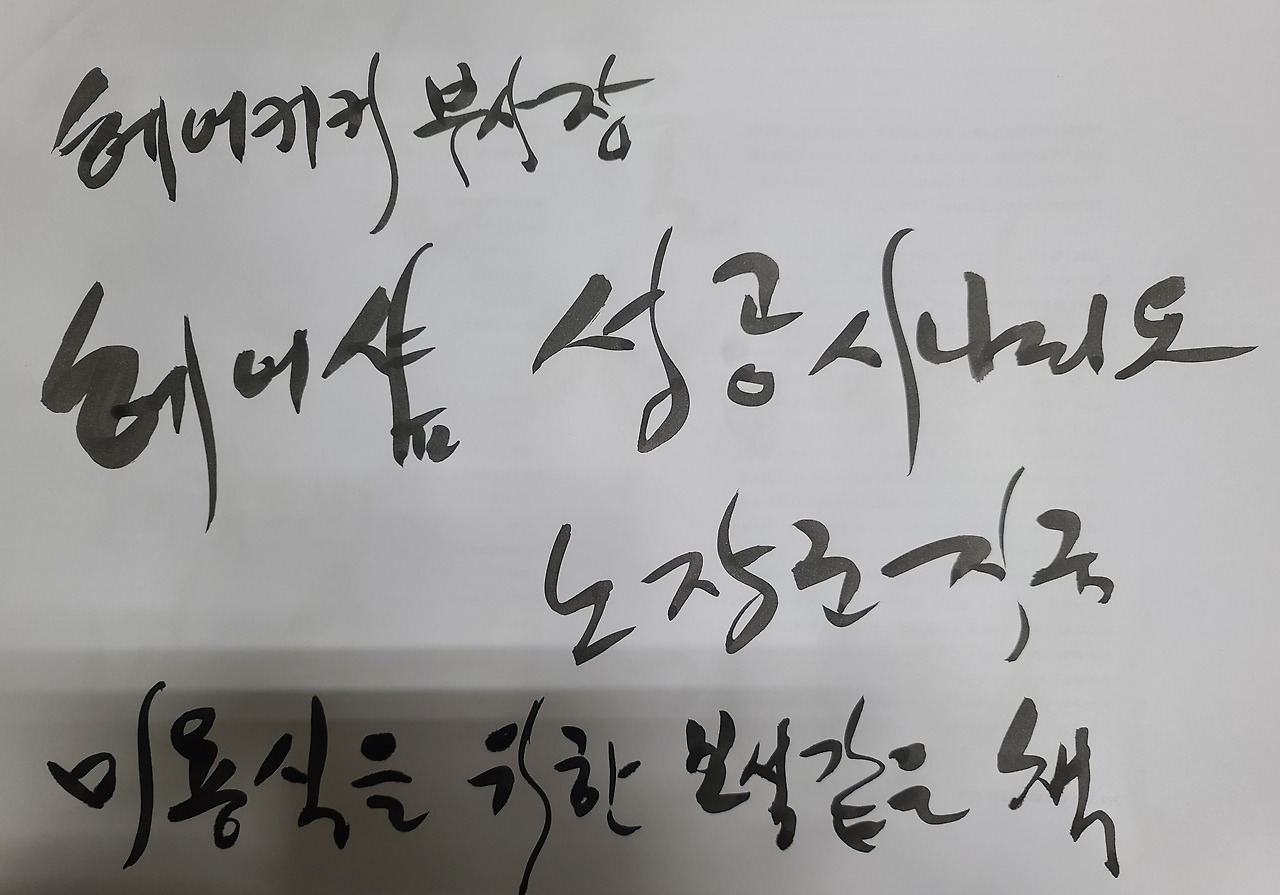 헤어키커 부사장
헤어샵 성공시나리오
노장로 지국
미용식을 위한 보석같은 책